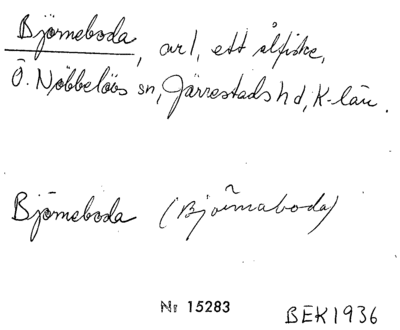 Björneboda, arl, ett ålfiske,
Ö. Nöbbelövs sn, Järrestads hd, K-län.
Björneboda (Bjö̃rnaboda)
Nr 15283
BEK 1936